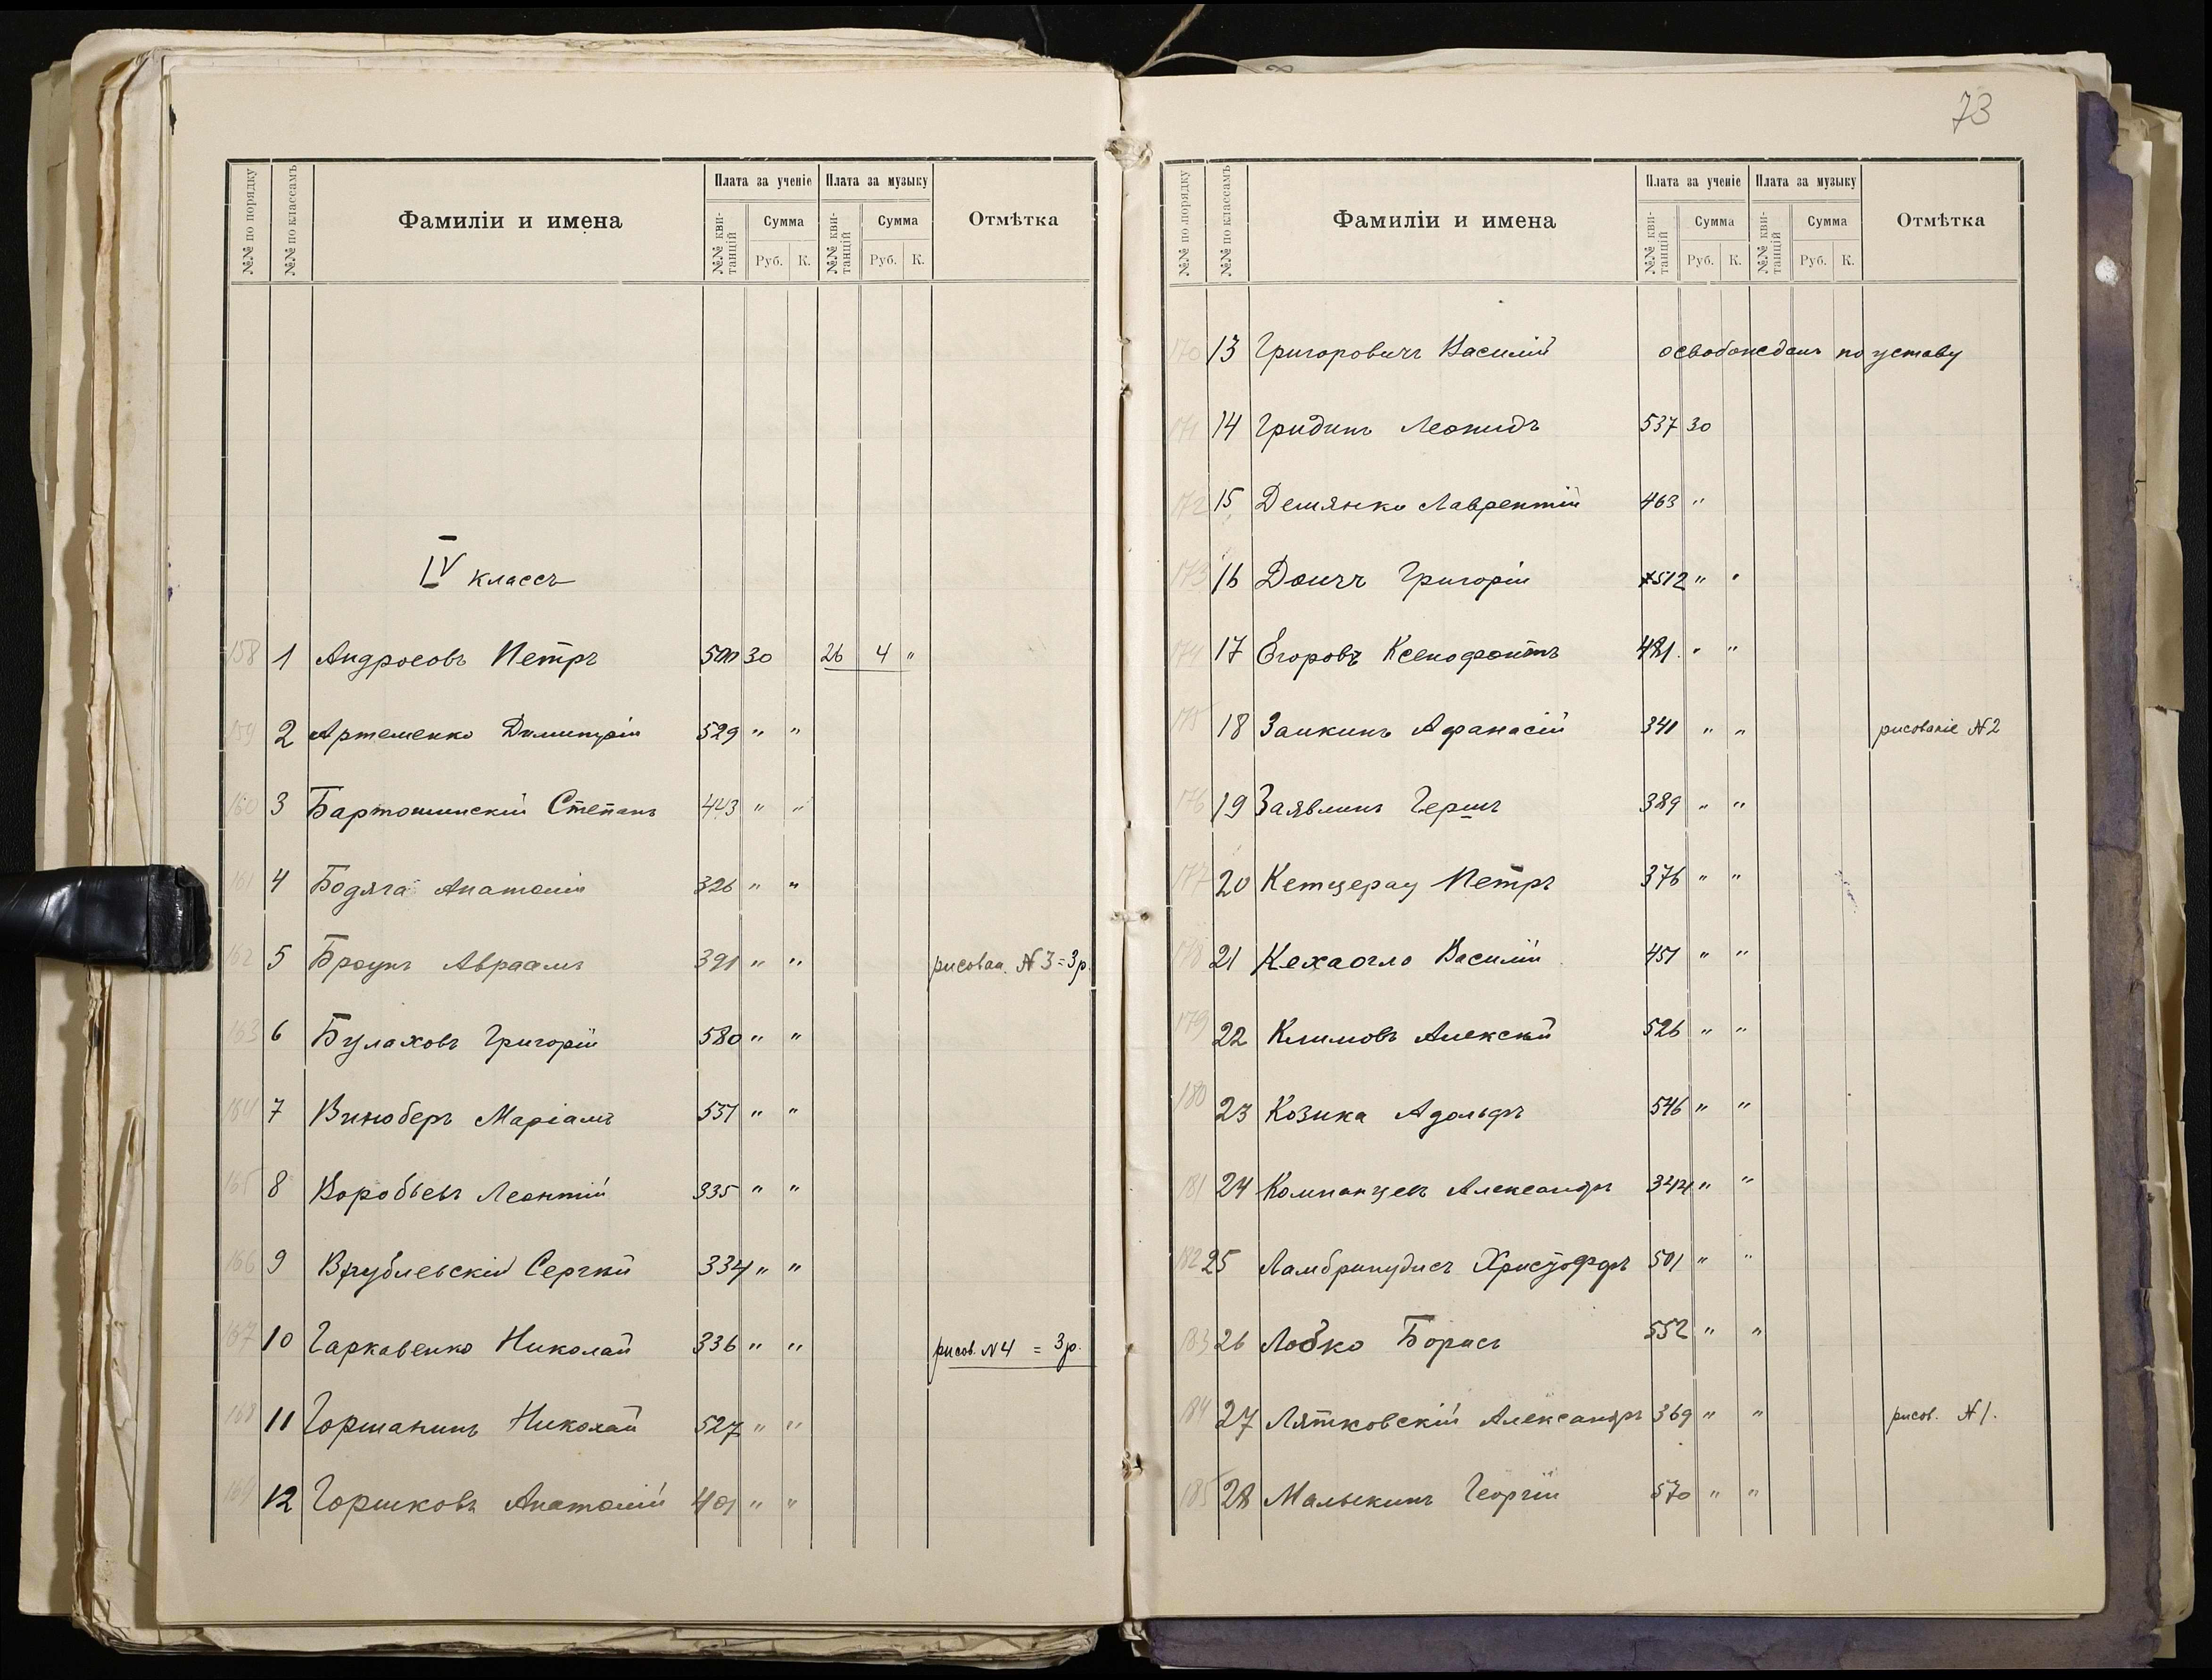 №№ по порядку №№ по классамъ Фамиліи и имена Плата за ученіе Плата за музыку Отмѣтка
№№ кви-танцій Сумма №№ кви-танцій Сумма
Руб. К. Руб. К.
IV классъ
158 1 Андросовъ Петръ 500 30 26 4 "
159 2 Артеменко Димитрій 529 " "
160 3 Бартошинскій Степанъ 443 " "
161 4 Бодяга Анатолій 326 " "
162 5 Броунъ Авраамъ 391 " " рисован. N 3 = 3 р.
163 6 Булаховъ Григорій 580 " "
164 7 Виноберъ Маріамъ 531 " "
165 8 Воробьевъ Леонтій 335 " "
166 9 Врублевскій Сергѣй 334 " "
167 10 Гаркавенко Николай 336 " " рисов. N 4 = 3 р.
168 11 Горшанинъ Николай 527 " "
169 12 Горшковъ Анатолій 401 " "
73
№№ по порядку №№ по классамъ Фамиліи и имена Плата за ученіе Плата за музыку Отмѣтка
№№ кви-танцій Сумма №№ кви-танцій Сумма
Руб. К. Руб. К.
170 13 Григоровичъ Василій освобожденъ по уставу
171 14 Гридинъ Леонидъ 537 30
172 15 Демянко Лаврентій 463 "
173 16 Доичъ Григорій 512 " "
174 17 Егоровъ Ксенофонтъ 481 " "
175 18 Заикинъ Афанасій 341 " " рисованіе N 2
176 19 Заявлинъ Гершъ 389 " "
177 20 Кетцерау Петръ 376 " "
178 21 Кехаогло Василій 451 " "
179 22 Климовъ Алексѣй 526 " "
180 23 Козика Адольфъ 546 " "
181 24 Компанцевъ Александръ 344 " "
182 25 Ламбрикудисъ Христофоръ 501 " "
183 26 Лобко Борисъ 552 " "
184 27 Лятковскій Александръ 369 " " рисов. N 1.
185 28 Малыкинъ Георгій 570 " "